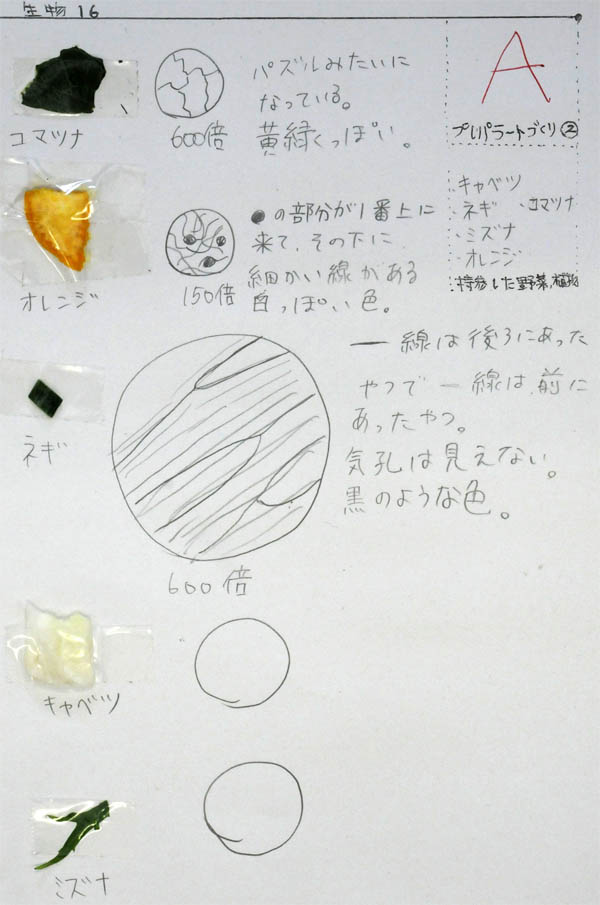 生物 16
A
プレパラートづくり②
キャベツ
ネギ ・コマツナ
ミズナ
オレンジ
持参した野菜、植物
コマツナ
600倍
パズルみたいに
なっている。
黄緑くっぽい。
オレンジ
150倍
●の部分が1番上に
来て、その下に
細かい線がある
白っぽい色。
ネギ
600倍
― 線は後ろにあった
やつで ― 線は、前に
あったやつ。
気孔は見えない。
黒のような色。
キャベツ
ミズナ